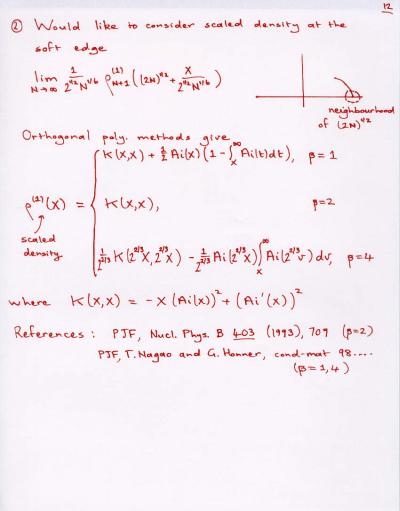 12
② Would like to consider scaled density at the
soft edge
lim_{N→∞} 1/(2^{1/2} N^{1/6}) ρ^{(1)}_{N+1} ((2N)^{1/2} + X/(2^{1/2} N^{1/6}))
neighbourhood
of (2N)^{1/2}
Orthogonal poly. methods give
K(X,X) + 1/2 Ai(X) (1 - ∫_X^∞ Ai(t)dt), β = 1
ρ^{(1)}(X) = { K(X,X), β=2
scaled
density
1/2^{1/3} K(2^{2/3}X, 2^{2/3}X) - 1/2^{2/3} Ai(2^{2/3}X) ∫_X^∞ Ai(2^{2/3}v) dv, β=4
where K(X,X) = -X (Ai(X))^2 + (Ai'(X))^2
References : PJF, Nucl. Phys. B 403 (1993), 709 (β=2)
PJF, T. Nagao and G. Honner, cond-mat 98....
(β=1,4)